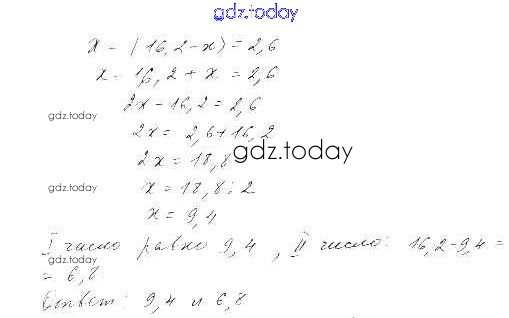 gdz.today
x - (16,2-x) = 2,6
x - 16,2 + x = 2,6
2x - 16,2 = 2,6
gdz.today
2x = 2,6+16,2
2x = 18,8
gdz.today
x = 18,8 : 2
gdz.today
x = 9,4
I число равно 9,4 , II число: 16,2-9,4 =
gdz.today
= 6,8
Ответ: 9,4 и 6,8